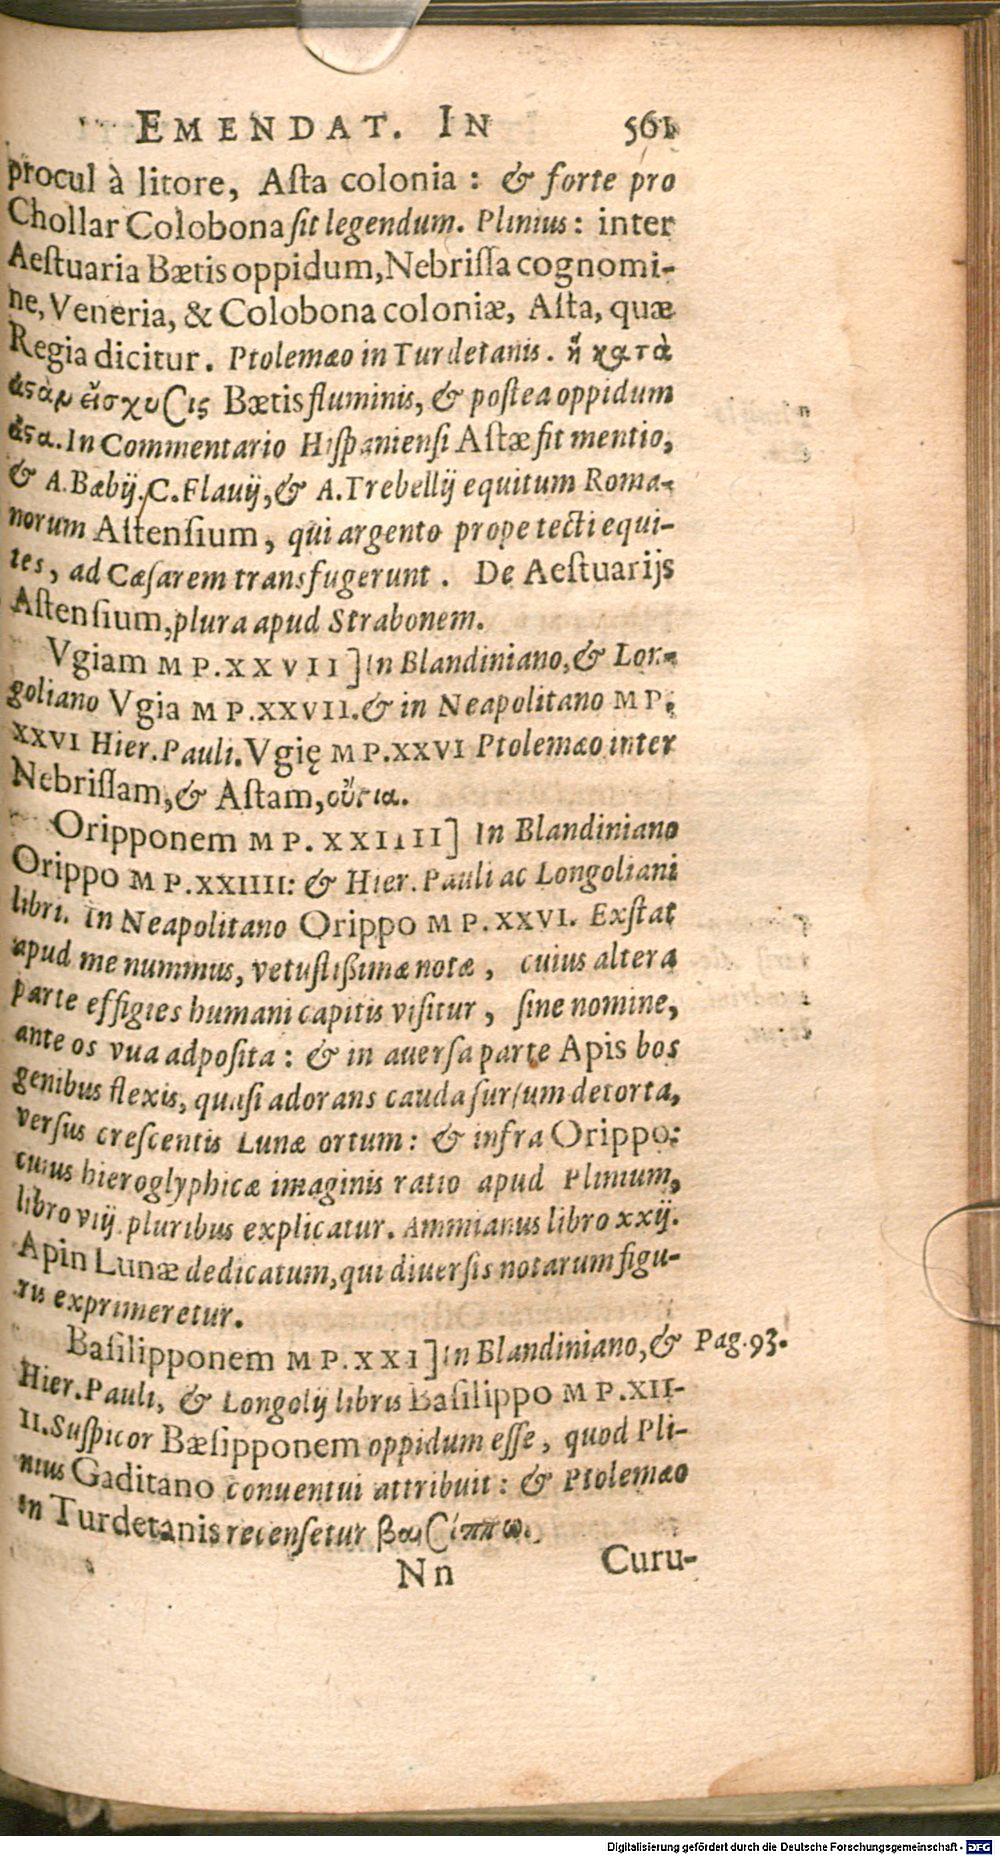 EMENDAT. IN 561
procul à litore, Aſta colonia : & forte pro
Chollar Colobona ſit legendum. Plinius : inter
Aeſtuaria Bætis oppidum, Nebriſſa cognomi-
ne, Veneria, & Colobona coloniæ, Aſta, quæ
Regia dicitur. Ptolemæo in Turdetanis. ἡ κατὰ
ἄϛαν εἴσχυσις Bætis fluminis, & poſtea oppidum
ἄϛα. In Commentario Hiſpanienſi Aſtæ fit mentio,
& A. Bæbij. C. Flauij, & A. Trebellij equitum Roma-
norum Aſtenſium, qui argento prope tecti equi-
tes, ad Cæſarem transfugerunt. De Aeſtuarijs
Aſtenſium, plura apud Strabonem.
Vgiam MP. XXVII] In Blandiniano, & Lon-
goliano Vgia MP. XXVII. & in Neapolitano MP.
XXVI Hier. Pauli. Vgię MP. XXVI Ptolemæo inter
Nebriſſam, & Aſtam, οὔγια.
Oripponem MP. XXIIII] In Blandiniano
Orippo MP. XXIIII: & Hier. Pauli ac Longoliani
libri. In Neapolitano Orippo MP. XXVI. Exſtat
apud me nummus, vetuſtißimæ notæ, cuius altera
parte effigies humani capitis viſitur, ſine nomine,
ante os vua adpoſita : & in auerſa parte Apis bos
genibus flexis, quaſi adorans cauda ſurſum detorta,
verſus creſcentis Lunæ ortum : & infra Orippo:
cuius hieroglyphicæ imaginis ratio apud Plinium,
libro viij. pluribus explicatur. Ammianus libro xxij.
Apin Lunæ dedicatum, qui diuerſis notarum figu-
ris exprimeretur.
Baſilipponem MP. XXI] In Blandiniano, & Pag. 93.
Hier. Pauli, & Longolij libris Baſilippo MP. XII-
II. Suſpicor Bæſipponem oppidum eſſe, quod Pli-
nius Gaditano conuentui attribuit : & Ptolemæo
in Turdetanis recenſetur βαισίππω.
Nn Curu-
Digitalisierung gefördert durch die Deutsche Forschungsgemeinschaft - DFG